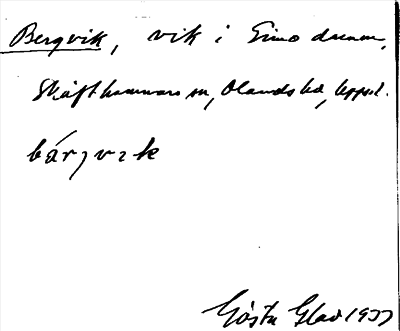 Bergvik, vik i Gimodamm,
Skäfthammars sn, Olands hd, Uppsl.
bárjvɩk
Gösta Glad 1933